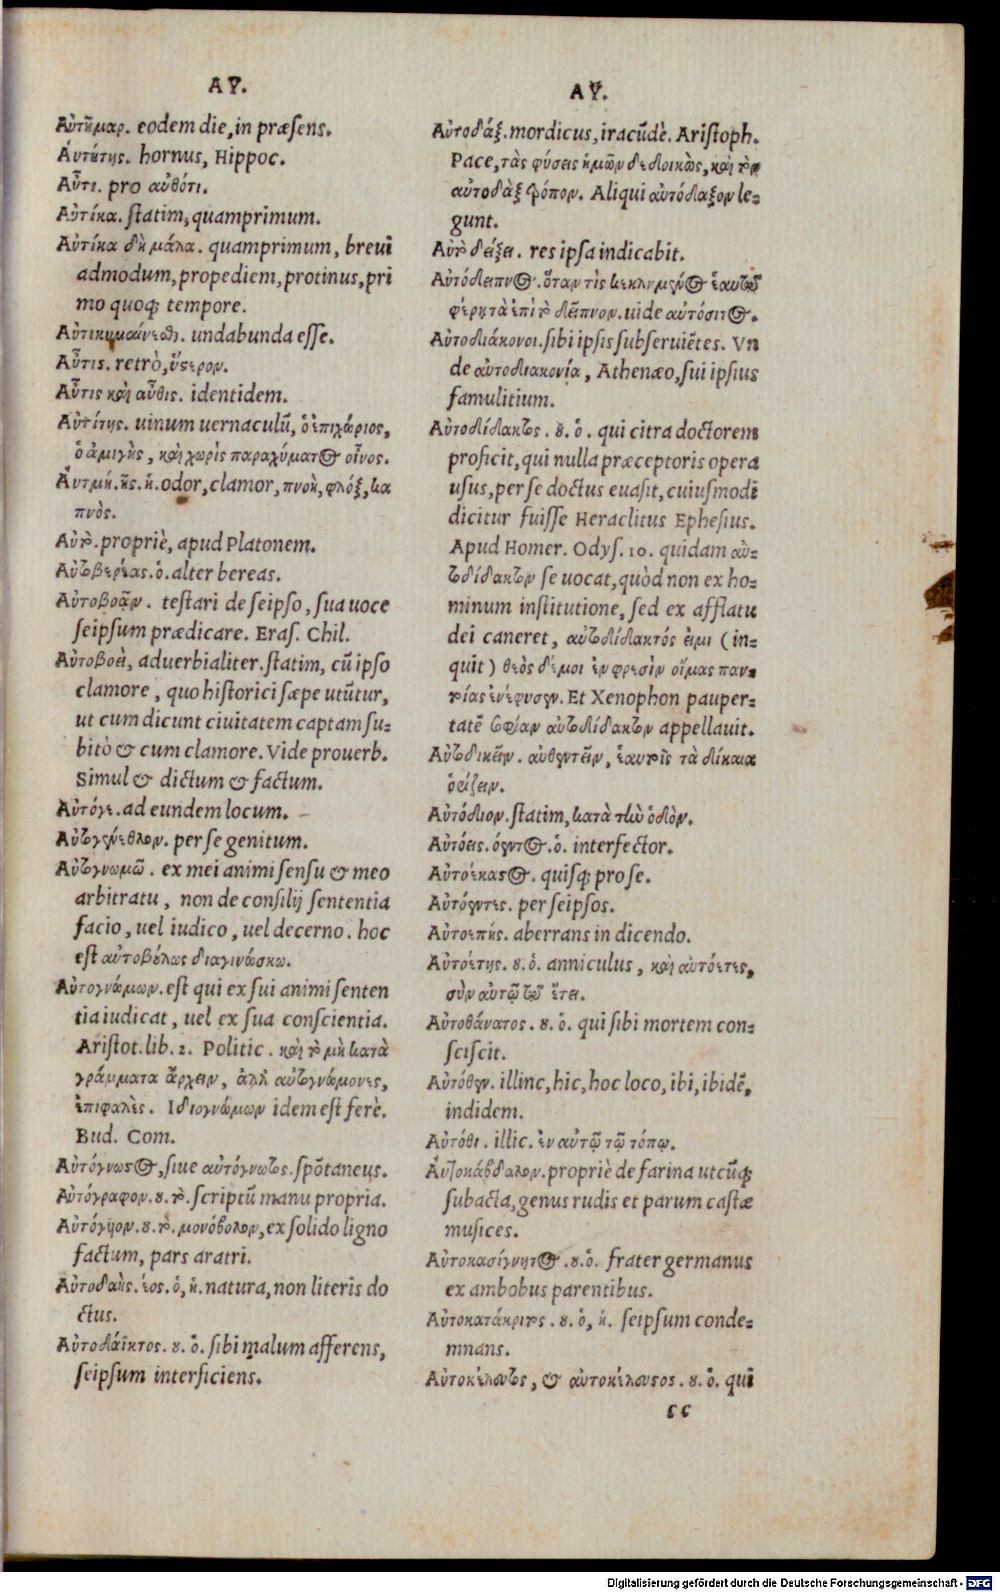 ΑΥ.
Αὐτῆμαρ. eodem die, in præsens.
Αὐτήτης. hornus, Hippoc.
Αὖτι. pro αὐθότι.
Αὐτίκα. statim, quamprimum.
Αὐτίκα δὴ μάλα. quamprimum, breui
admodum, propediem, protinus, pri
mo quoq; tempore.
Αὐτικυμαίνεσθ. undabunda esse.
Αὖτις. retrò, ὕστερον.
Αὖτις καὶ αὖθις. identidem.
Αὐτίτης. uinum uernaculũ, ὁ ἐπιχώριος,
ὁ ἀμιγὴς, καὶ χωρὶς παραχύματος οἶνος.
Ἀυτμή. ῆς. ἡ. odor, clamor, πνοὴ, φλόξ, κα
πνὸς.
Αὐτὸ. propriè, apud Platonem.
Αὐτοβερέας. ὁ. alter bereas.
Αὐτοβοᾷν. testari de seipso, sua uoce
seipsum prædicare. Eras. Chil.
Αὐτοβοεὶ, aduerbialiter. statim, cũ ipso
clamore, quo historici sæpe utũtur,
ut cum dicunt ciuitatem captam su-
bitò & cum clamore. Vide prouerb.
Simul & dictum & factum.
Αὐτόγε. ad eundem locum.
Αὐτογένεθλον. per se genitum.
Αὐτογνωμῶ. ex mei animi sensu & meo
arbitratu, non de consilij sententia
facio, uel iudico, uel decerno. hoc
est αὐτοβούλως διαγινώσκω.
Αὐτογνώμων. est qui ex sui animi senten
tia iudicat, uel ex sua conscientia.
Aristot. lib. 2. Politic. καὶ τὸ μὴ κατὰ
γράμματα ἄρχειν, ἀλλ' αὐτογνώμονες,
ἐπισφαλές. Ιδιογνώμων idem est ferè.
Bud. Com.
Αὐτόγνωστος, siue αὐτόγνωτος. spõtaneus.
Αὐτόγραφον. ου. τὸ. scriptũ manu propria.
Αὐτόγυον. ου. τὸ. μονόβολον, ex solido ligno
factum, pars aratri.
Αὐτοδαής. έος. ὁ, ἡ. natura, non literis do
ctus.
Αὐτοδάϊκτος. ου. ὁ. sibi malum afferens,
seipsum interficiens.
ΑΥ.
Αὐτοδάξ. mordicus, iracũdè. Aristoph.
Pace, τὰς φύσεις ἡμῶν δεδοικὼς, καὶ τὸν
αὐτοδὰξ τρόπον. Aliqui αὐτόδαξον le-
gunt.
Αὐτὸ δείξει. res ipsa indicabit.
Αὐτόδειπνος. ὅταν τὶς κεκλημένος ἑαυτῷ
φέρῃ τὰ ἐπὶ τὸ δεῖπνον. uide αὐτόσιτος.
Αὐτοδιάκονοι. sibi ipsis subseruiẽtes. Vn
de αὐτοδιακονία, Athenæo, sui ipsius
famulitium.
Αὐτοδίδακτος. ου. ὁ. qui citra doctorem
proficit, qui nulla præceptoris opera
usus, per se doctus euasit, cuiusmodi
dicitur fuisse Heraclitus Ephesius.
Apud Homer. Odys. 10. quidam αὐ-
τοδίδακτον se uocat, quòd non ex ho-
minum institutione, sed ex afflatu
dei caneret, αὐτοδίδακτός εἰμι (in-
quit) θεὸς δέ μοι ἐν φρεσὶν οἴμας παν-
τοίας ἐνέφυσεν. Et Xenophon pauper-
tatẽ σοφίαν αὐτοδίδακτον appellauit.
Αὐτοδικεῖν. αὐθεντεῖν, ἑαυτοῖς τὰ δίκαια
ὁρίζειν.
Αὐτόδιον. statim, κατὰ τὴν ὁδὸν.
Αὐτόεις. όεντος. ὁ. interfector.
Αὐτοέκαστος. quisq; pro se.
Αὐτόεντες. per seipsos.
Αὐτοεπής. aberrans in dicendo.
Αὐτοέτης. ου. ὁ. anniculus, καὶ αὐτόετες,
σὺν αὐτῷ τῷ ἔτει.
Αὐτοθάνατος. ου. ὁ. qui sibi mortem con-
sciscit.
Αὐτόθεν. illinc, hic, hoc loco, ibi, ibidẽ,
indidem.
Αὐτόθι. illic. ἐν αὐτῷ τῷ τόπῳ.
Αὐτοκάβδαλον. propriè de farina utcũq;
subacta, genus rudis et parum castæ
musices.
Αὐτοκασίγνητος. ου. ὁ. frater germanus
ex ambobus parentibus.
Αὐτοκατάκριτος. ου. ὁ, ἡ. seipsum conde-
mnans.
Αὐτοκέλευτος, & αὐτοκέλευσος. ου. ὁ. qui
ss
Digitalisierung gefördert durch die Deutsche Forschungsgemeinschaft - DFG